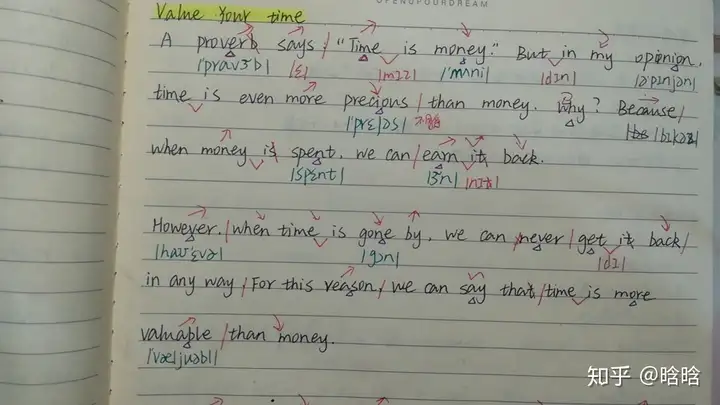 OPENUPOURDREAM
Value Your time
A proverb says / "Time is money." But in my opinion,
/'prɑvɜb/ /ɛ/ /mɪz/ /'mʌni/ /dɪn/ /ə'pɪnjən/
time is even more precious / than money. Why? Because/
/'prɛʃəs/ /bɪkəz/
when money is spent, we can / earn it back.
/spɛnt/ /ɜn/ /nɪt/
However, / when time is gone by, we can never / get it back /
/haʊ'ɛvə/ /gɔn/ /dɪ/
in any way / For this reason, / we can say that / time is more
valuable / than money.
/'væljuəbl/
知乎 @晗晗